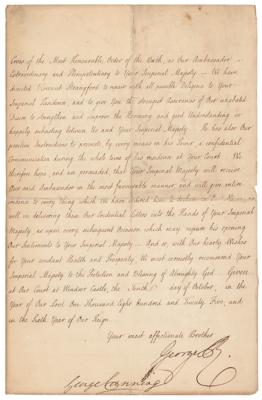 Cross of the Most Honourable Order of the Bath, as Our Ambassador
Extraordinary and Plenipotentiary to Your Imperial Majesty — We have
directed Viscount Strangford to repair with all possible Diligence to Your
Imperial Residence, and to give You the strongest Assurances of Our unabated
Desire to strengthen and improve the Harmony and good Understanding so
happily subsisting between Us and Your Imperial Majesty. He has also Our
positive Instructions to promote, by every means in his Power, a confidential
Communication during the whole time of his residence at Your Court. We
therefore hope, and are persuaded, that Your Imperial Majesty will receive
Our said Ambassador in the most favourable manner, and will give entire
credence to every thing which We have ordered him to declare in Our Name, as
well in delivering these Our Credential Letters into the Hands of Your Imperial
Majesty, as upon every subsequent Occasion which may require his opening
Our Sentiments to Your Imperial Majesty — And so, with Our hearty Wishes
for Your constant Health and Prosperity, We most earnestly recommend Your
Imperial Majesty to the Protection and Blessing of Almighty God. Given
at Our Court at Windsor Castle, the Tenth day of October, in the
Year of Our Lord One Thousand Eight Hundred and Twenty Five, and
in the Sixth Year of Our Reign.
Your most affectionate Brother
George R.
George Canning